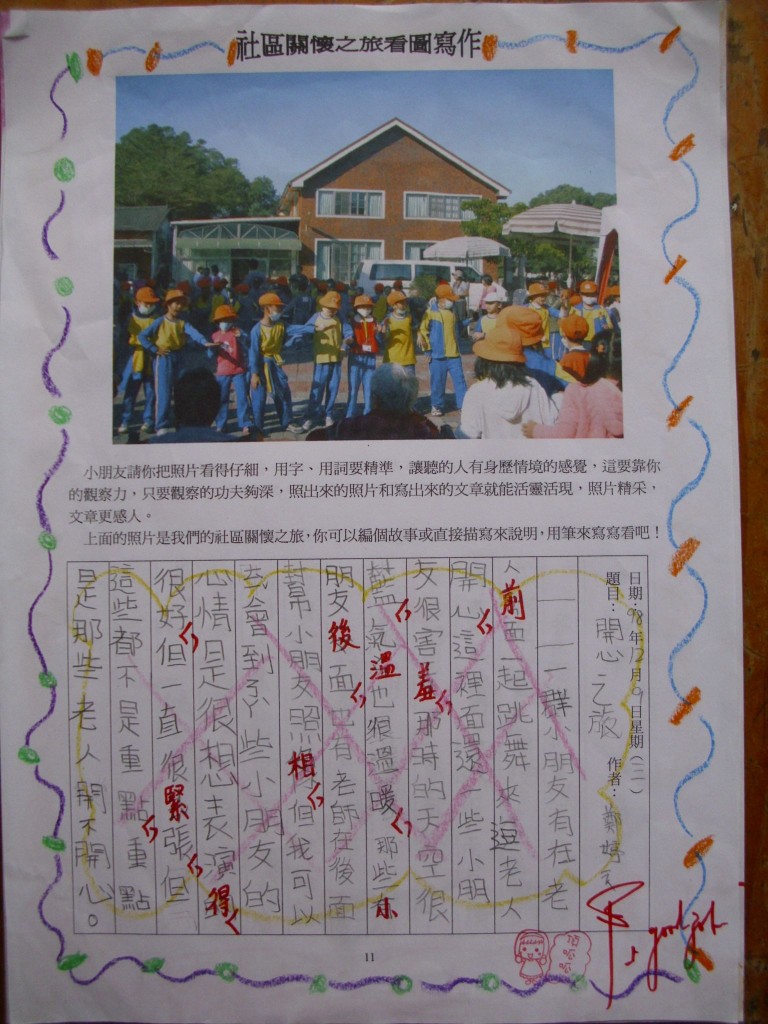 社區關懷之旅看圖寫作
小朋友請你把照片看得仔細，用字、用詞要精準，讓聽的人有身歷情境的感覺，這要靠你
的觀察力，只要觀察的功夫夠深，照出來的照片和寫出來的文章就能活靈活現，照片精采，
文章更感人。
上面的照片是我們的社區關懷之旅，你可以編個故事或直接描寫來說明，用筆來寫寫看吧！
日期：98年12月9日星期（二）
題目：開心之旅 作者：鄭婷
一群小朋友有在老
人前面一起跳舞來逗老人
開心，這裡面還一些小朋
友很害羞，那時的天空很
藍，氣溫也很溫暖，那些小
朋友後面，也有老師在後面
幫小朋友照相，但我可以
會到那些小朋友的
心情是很想表演得
很好，但一直很緊張，但
這些都不是重點，重點
是那些老人開不開心。
good job
11